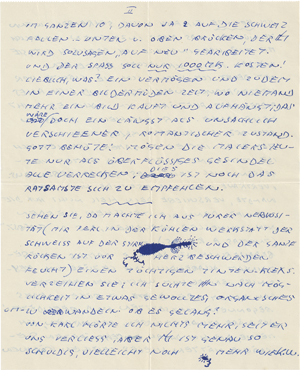 III
IM GANZEN 10, DAVON JA 2 AUF DIE SCHWEIZ
FALLEN. UNTEN U. OBEN BRÜCKEN, DER
WIRD SOZUSAGEN „AUF NEU" GEARBEITET.
UND DER SPASS SOLL NUR 1000 MK. KOSTEN!
LIEBLICH, WAS? EIN VERMÖGEN UND ZUDEM
IN EINER BILDERMÜDEN ZEIT, WO NIEMAND
MEHR EIN BILD KAUFT UND AUFHÄNGT; DAS
WÄRE DOCH EIN LÄNGST ALS UNSACHLICH
VERSCHIEENER, ROMANTISCHER ZUSTAND.
GOTT BEHÜTE! MÖGEN DIE MALERSLEU-
TE NUR ALS ÜBERFLÜSSIGES GESINDEL
ALLE VERRECKEN, DIES IST NOCH DAS
RATSAMSTE SICH ZU EMPFEHLEN.
SEHEN SIE, DA MACHTE ICH AUS PURER NERVOSI-
TÄT (MIR PERLT IN DER KÜHLEN WERKSTATT DER
SCHWEISS AUF DER UND DER GANZE
RÜCKEN IST VOR HERZBESCHWERDEN
FEUCHT) EINEN TÜCHTIGEN TINTENKLEKS.
VERZEIHEN SIE; ICH SUCHTE IHN NACH MÖG-
LICHKEIT IN ETWAS GEWOLLTES, ORGANISCHES
UM-ZU VERWANDELN OB ES GELANG?
VON KARL HÖRTE ICH NICHTS MEHR, SEIT ER
UNS VERLIESS, ABER IST GENAU SO
SCHULDIG, VIELLEICHT NOCH MEHR